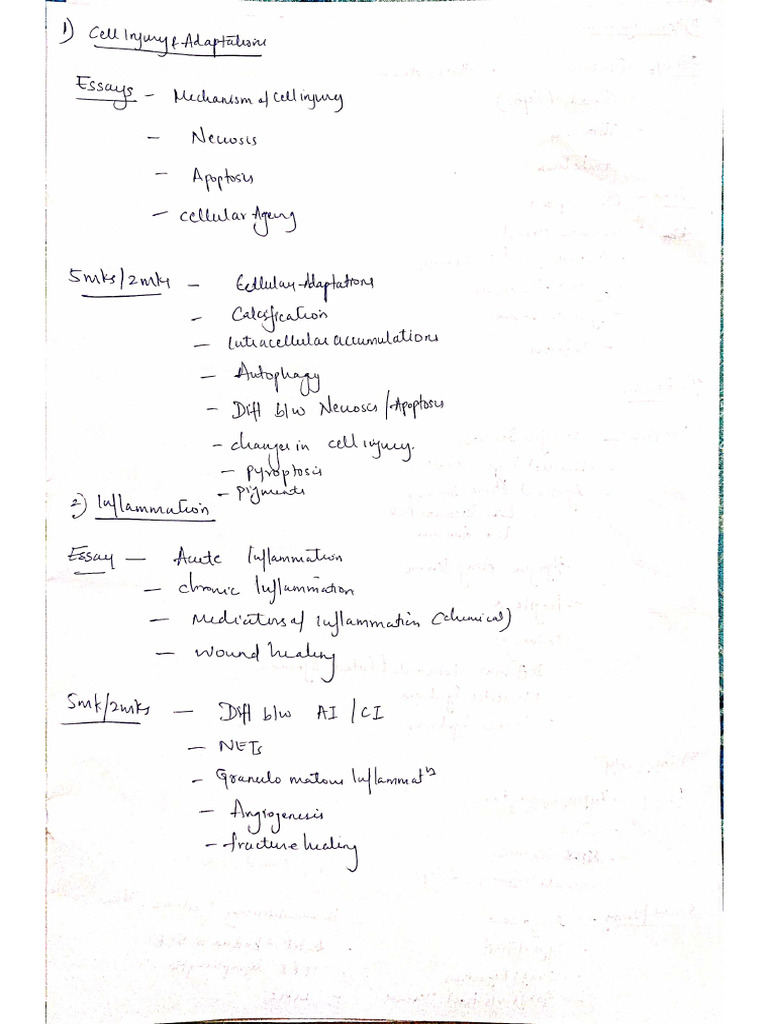 1) Cell Injury & Adaptations
Essays - Mechanism of cell injury
- Necrosis
- Apoptosis
- Cellular Ageing
5mks/2mks - Cellular Adaptations
- Calcification
- Intracellular accumulations
- Autophagy
- Diff b/w Necrosis/Apoptosis
- changes in cell injury.
- Pyroptosis
- Pigments
2) Inflammation
Essay - Acute Inflammation
- chronic Inflammation
- Mediators of inflammation (chemical)
- Wound healing
5mk/2mks - Diff b/w AI/CI
- NETs
- Granulomatous Inflammatn
- Angiogenesis
- fracture healing